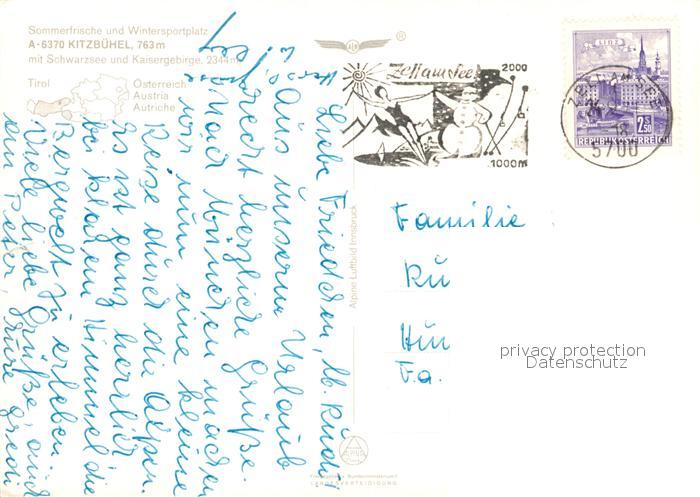 Sommerfrische und Wintersportplatz
A-6370 KITZBÜHEL, 763 m
mit Schwarzsee und Kaisergebirge, 2344m
Tirol
Österreich
Austria
Autriche
Zell am See
2000
1000m
ZELL AM SEE
5700
LINZ
2.50
REPUBLIK ÖSTERREICH
Alpine Luftbild Innsbruck
Liebe Friedchen, lb. Rudi!
Aus unserm Urlaub
recht herzliche Grüße.
Nach München machen
wir nun eine kleine
Reise durch die Alpen.
Es ist ganz herrlich
bei klarem Himmel die
Bergwelt zu erleben.
Viele liebe Grüße, auch
ein Peter,
Familie
Ru
Hin
Fa.
privacy protection
Datenschutz
LANDESVERTEIDIGUNG